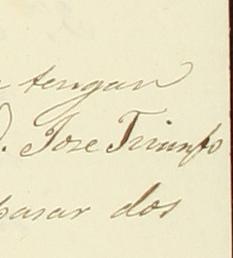 tengan
D. Jose Triunfo
pasar dos